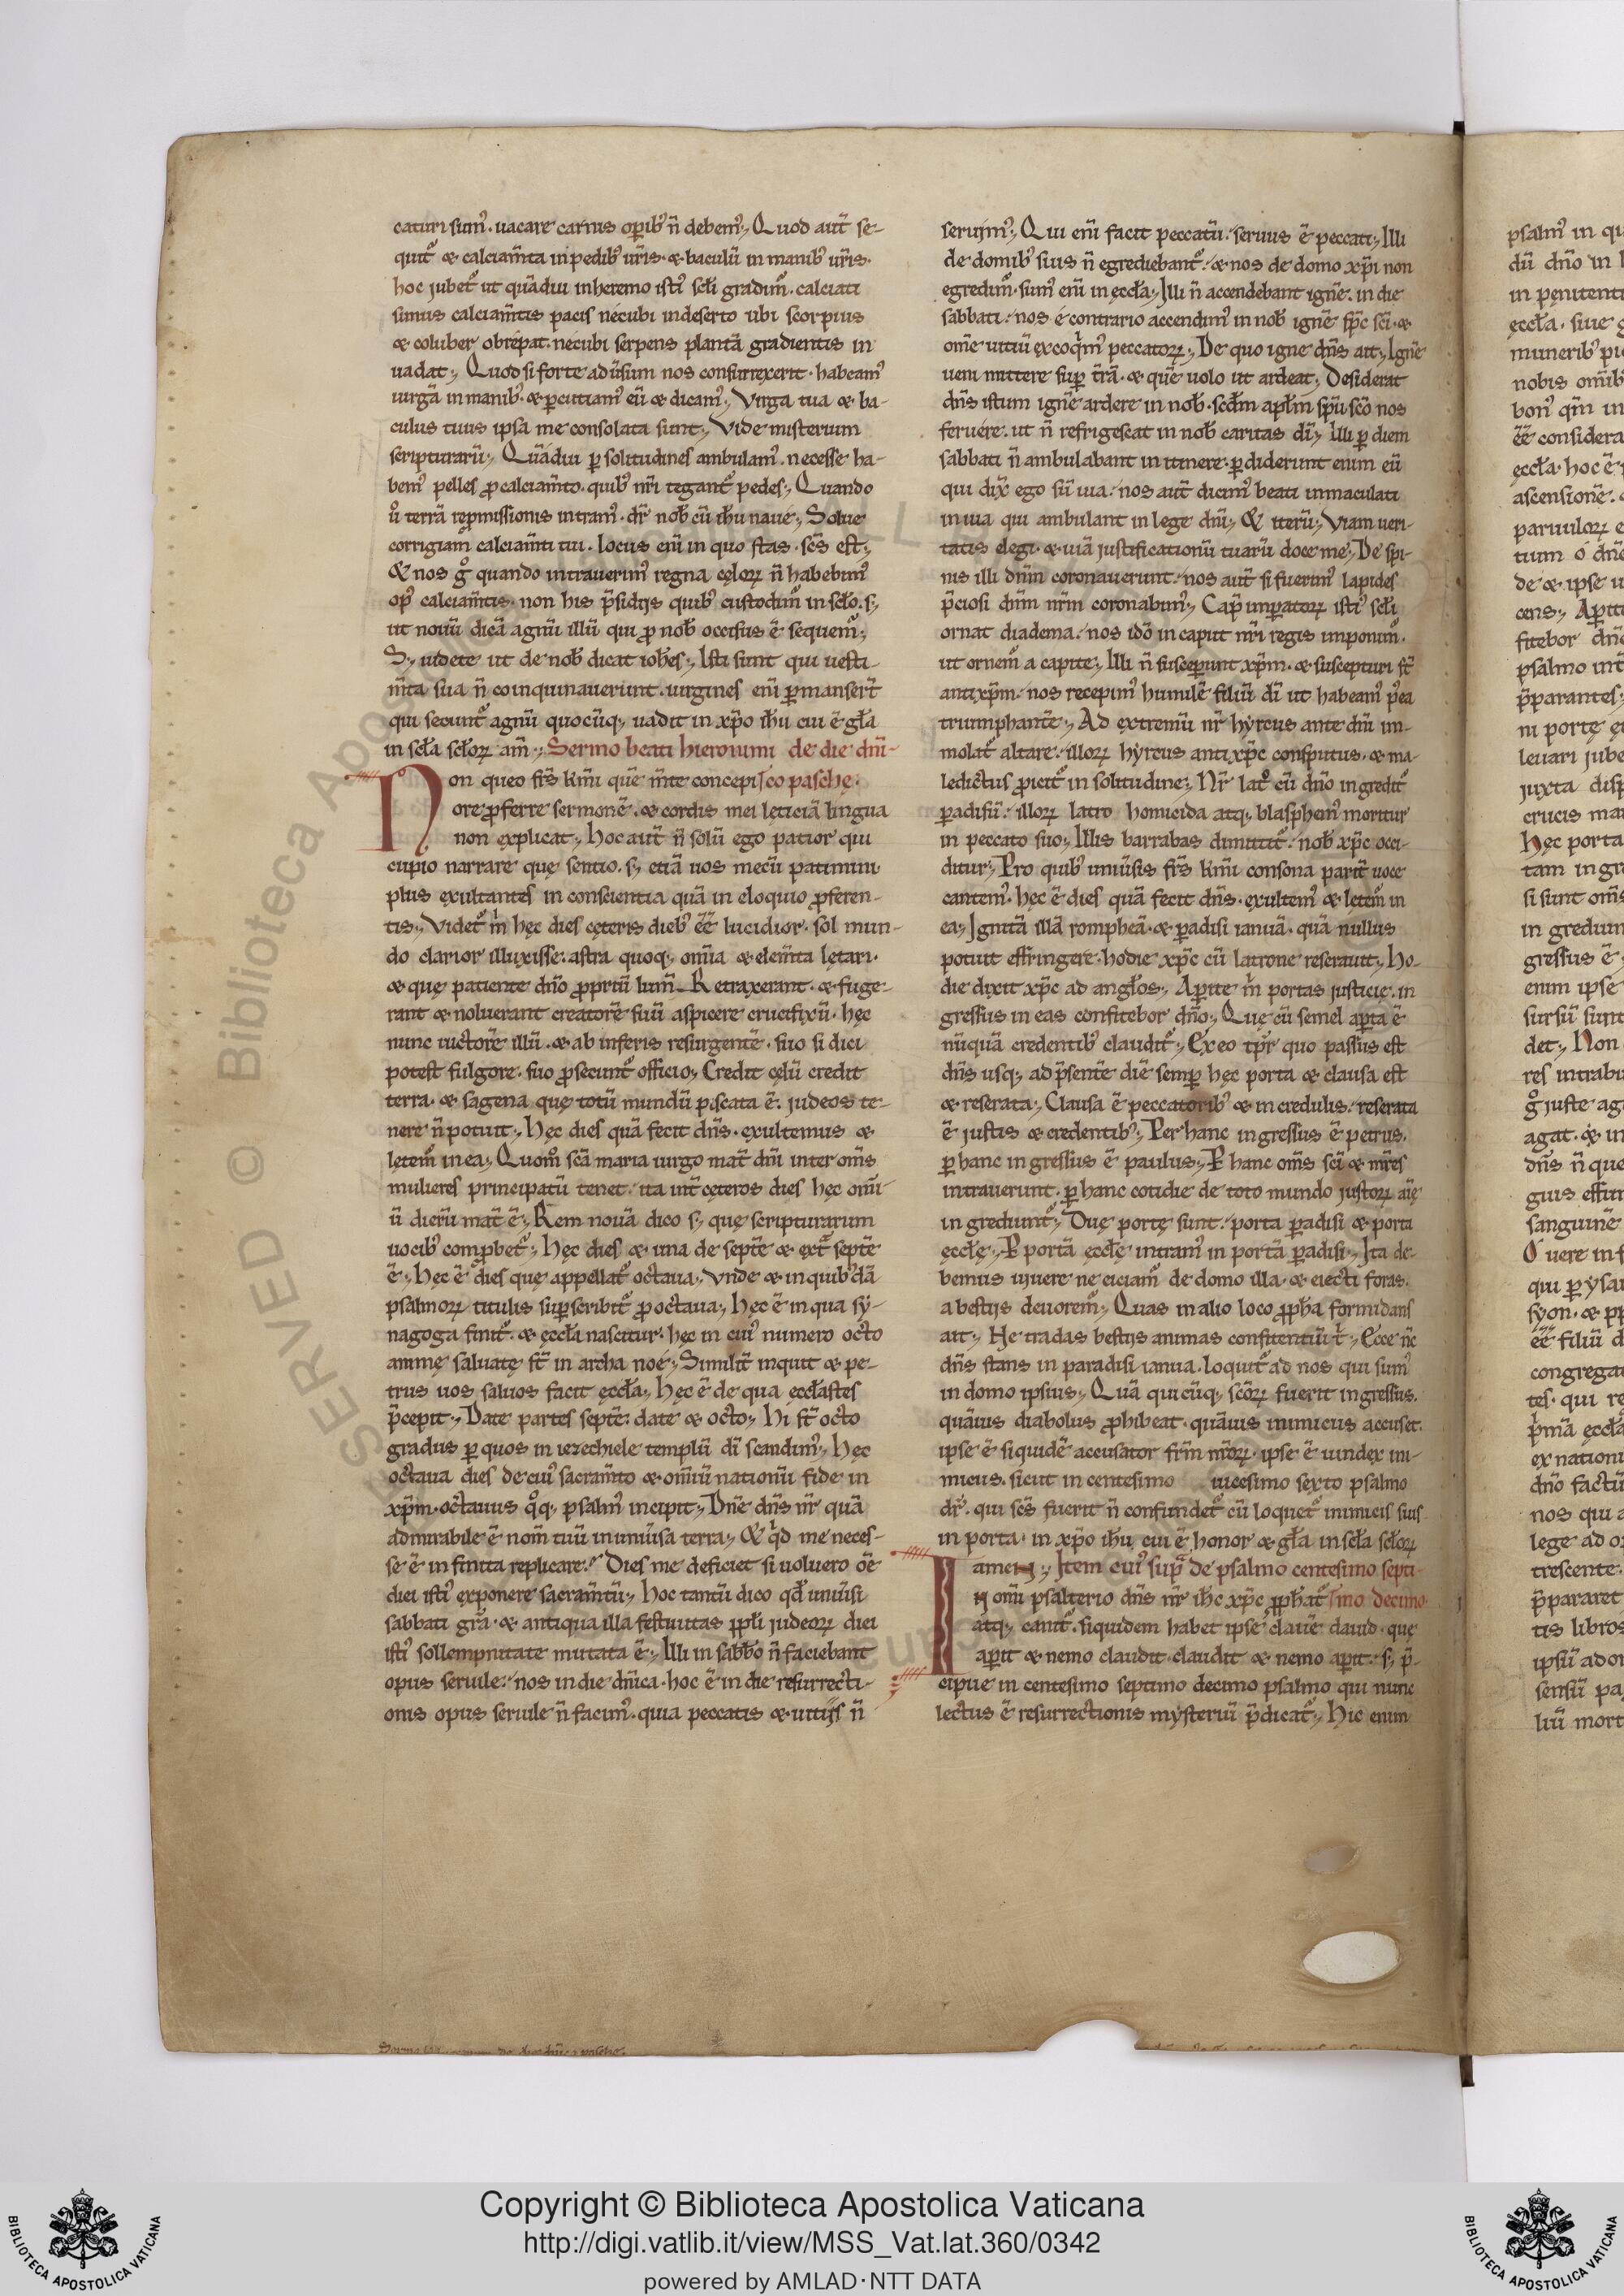 caturi sum᾽. uacare carnis op̲ib᾽ n̄ debem᾽;, Quod aut̄ se-
quit᾽ & calciam̄ta in pedib᾽ ur̄is. & baculū in manib᾽ ur̄is.
hoc jubet᾽ ut quādiu in heremo isti᾽ scłi gradim᾽. calciati
simus calciam̄tis pacis necubi in deserto ubi scorpius
& coluber obrepat. necubi serpens plantā gradientis in
uadat;, Quod si forte adūsum nos consurrexerit. habeam᾽
uirgā in manib᾽. & p̲cutiam᾽ eū & dicam᾽;, Virga tua & ba-
culus tuus ipsa me consolata sunt;, Vide misterium
scripturarū;, Quādiu p̲ solitudines ambulam᾽. necesse ha-
bem᾽ pelles ꝓ calciam̄to. quib᾽ nr̄i tegant᾽ pedes;, Quando
u᾽ terrā repmissionis intram᾽. dr̄ nob̄ cū ih̄u naue;, Solue
corrigiam calciam̄ti tui. locus eni᾽ in quo stas. sc̄s est;,
& nos g᾽ quando intrauerim᾽ regna cęloꝝ n̄ habebim᾽
op᾽ calciam̄tis. non his p̄sidijs quib᾽ custodim᾽ in scło. s;,
ut nouū dicā agnū illū qui ꝓ nob̄ occisus ē sequem᾽;,
S;, uidete ut de nob̄ dicat ioh̄es;, Isti sunt qui uesti-
m̄ta sua n̄ coinquinauerunt. uirgines eni᾽ p̲manser̄t
qui secunt᾽ agnū quocūq;, uadit in xp̄o ih̄u cui ē gła
in scła scłoꝝ am̄;, Sermo beati hieronimi de die dnī-
Non queo fr̄s km̄i quē m̄te concepi | co pasche.
ore ꝓferre sermonē. & cordis mei lęticiā lingua
non explicat;, hoc aut̄ n̄ solū ego patior qui
cupio narrare que sentio. s;, etiā uos mecū patimini
plus exultantes in conscientia quā in eloquio ꝓferen-
tis;, Videt᾽ m̍ hęc dies cęteris dieb᾽ ēē lucidior. sol mun-
do clarior illuxisse. astra quoq;, om̄ia & elem̄ta lętari.
& que patiente dn̄o ꝓpriū lum̄ Retraxerant. & fuge-
rant & noluerant creatorē suū aspicere crucifixū. hęc
nunc uictorē illū. & ab inferis resurgentē. suo si dici
potest fulgore. suo ꝓsecunt᾽ officio;, Credit cęlū credit
terra. & sagena que totū mundū piscata ē. judeos te-
nere n̄ potuit;, Hęc dies quā fecit dn̄s. exultemus &
lętem᾽ in ea;, Quom᾽ scā maria uirgo mat̄ dn̄i inter om̄s
mulieres principatū tenet. ita int̄ cęteros dies hęc omī-
ū dierū mat̄ ē;, Rem nouā dico s;, que scripturarum
uocib᾽ comꝓbet᾽;, Hęc dies & una de septē & ext̄ septē
ē;, Hęc ē dies que appellat᾽ octaua;, Vnde & in quib᾽dā
psalmoꝝ titulis sup̲scribit᾽ ꝓ octaua;, Hęc ē in qua sy-
nagoga finit᾽. & ęccła nascitur. hęc in cui᾽ numero octo
animę saluatę st̄ in archa noe;, Similit̄ inquit & pe-
trus uos saluos facit ęccła;, Hęc ē de qua ęccłastes
p̄cepit;, Date partes septē. date & octo;, Hi st̄ octo
gradus p̲ quos in iezechiele templū dī scandim᾽;, Hęc
octaua dies de cui᾽ sacram̄to & om̄iū nationū fide in
xp̄m. octauus q᾽q;, psalm᾽ incipit;, Dn̄e dn̄s nr̄ quā
admirabile ē nom̄ tuū in uniūsa terra;, & q̍d me neces-
se ē in finita replicare. Dies me deficiet si uoluero oē
diei isti᾽ exponere sacram̄tū;, Hoc tantū dico qd̄ uniūsi
sabbati grā. & antiqua illa festiuitas ppłi judeoꝝ diei
isti᾽ sollempnitate mutata ē;, Illi in sabb̄o n̄ faciebant
opus seruile. nos in die dn̄ica. hoc ē in die resurrecti-
onis opus seruile n̄ facim᾽. quia peccatis & uitijs n̄
seruim᾽;, Qui eni᾽ facit peccatū. seruus ē peccati;, Illi
de domib᾽ suis n̄ egrediebant᾽. & nos de domo xp̄i non
egredim᾽. sum᾽ enī in ęccła;, Illi n̄ accendebant ignē. in die
sabbati. nos e contrario accendim᾽ in nob̄ ignē sp̄c sc̄i. &
om̄e uitiū excoq̍m᾽ peccatoꝝ;, De quo igne dn̄s ait;, Ignē
ueni mittere sup̲ t̄rā. & quē uolo ut ardeat;, Desiderat
dn̄s istum ignē ardere in nob̄. scd̄m apłm sp̄u sc̄o nos
feruere. ut n̄ refrigescat in nob̄ caritas dī;, Illi p̲ diem
sabbati n̄ ambulabant in itinere. p̲diderunt enim eū
qui dix̄ ego sū uia. nos aut̄ dicim᾽ beati inmaculati
in uia qui ambulant in lege dn̄i;, & iterū;, Viam ueri-
tatis elegi. & uiā justificationū tuarū doce me;, De spi-
nis illi dn̄m coronauerunt. nos aut̄ si fuerim᾽ lapides
p̄ciosi dn̄m nr̄m coronabim᾽;, Cap̄ inp̲atoꝝ isti᾽ scłi
ornat diadema. nos idō in caput nr̄i regis imponim᾽.
ut ornem᾽ a capite;, Illi n̄ suscep̲unt xp̄m. & suscepturi st̄
antixp̄m. nos recepim᾽ humilē filiū dī ut habeam᾽ p᾽ea
triumphantē;, Ad extremū nr̄ hyrcus ante dn̄i im-
molat᾽ altare. illoꝝ hyrcus antixp̄c consputus. & ma-
ledictus ꝓicit᾽ in solitudine;, Nr̄ lat᾽ cū dn̄o ingredit᾽
p̲adisū. illoꝝ latro homicida atq;, blasphem᾽ moritur
in peccato suo;, Illis barrabas dimittit᾽. nob̄ xp̄c occi-
ditur;, Pro quib᾽ uniūsis fr̄s km̄i consona parit̄ uoce
cantem᾽. hęc ē dies quā fecit dn̄s. exultem᾽ & lętem᾽ in
ea;, Ignitā illā rompheā. & p̲adisi ianuā. quā nullus
potuit effringere. hodie xp̄c cū latrone reserauit;, Ho-
die dixit xp̄c ad angłos;, Ap̲ite m̍ portas justicię. in
gressus in eas confitebor dn̄o;, Quę cū semel ap̲ta ē
nūquā credentib᾽ claudit᾽;, Ex eo tp̄r quo passus est
dn̄s usq;, ad p̄sentē diē semp̲ hęc porta & clausa est
& reserata;, Clausa ē peccatorib᾽ & incredulis. reserata
ē justis & credentib᾽;, Per hanc ingressus ē petrus.
p̲ hanc ingressus ē paulus;, P̲ hanc om̄s sc̄i & mr̄es
intrauerunt. p̲ hanc cotidie de toto mundo justoꝝ aīę
ingrediunt᾽;, Duę portę sunt. porta p̲adisi & porta
ęccłę;, P̲ portā ęccłę intram᾽ in portā p̲adisi;, Ita de-
bemus uiuere ne eiciam᾽ de domo illa. & eiecti foras.
a bestijs deuorem᾽;, Quas in alio loco ꝓph̄a formidans
ait;, Ne tradas bestijs animas confitentiū t̍;, Ecce nc̄
dn̄s stans in paradisi ianua. loquit᾽ ad nos qui sum᾽
in domo ipsius;, Quā quicūq;, sc̄oꝝ fuerit ingressus.
quāuis diabolus ꝓhibeat. quāuis inimicus accuset.
ipse ē siquidē accusator fr̄m nr̄oꝝ. ipse ē uindex ini-
micus. sicut in centesimo uicesimo sexto psalmo
dr̄. qui sc̄s fuerit n̄ confundet᾽ cū loquet᾽ inimicis suis
in porta. in xp̄o ih̄u cui ē honor & gła in scła scłoꝝ
amen;, Item cui᾽ sup̄ de psalmo centesimo septi-
In omī psalterio dn̄s nr̄ ih̄c xp̄c ꝓph̄at᾽ | mo decimo.
atq;, canit᾽. siquidem habet ipse clauē dauid. que
ap̲it & nemo claudit. claudit & nemo ap̲it. s;, p̄-
cipue in centesimo septimo decimo psalmo qui nunc
lectus ē resurrectionis mysteriū p̄dicat᾽;, Hic enim
Copyright © Biblioteca Apostolica Vaticana
http://digi.vatlib.it/view/MSS_Vat.lat.360/0342
powered by AMLAD·NTT DATA
BIBLIOTECA APOSTOLICA VATICANA
BIBLIOTECA APOSTOLICA VATICANA